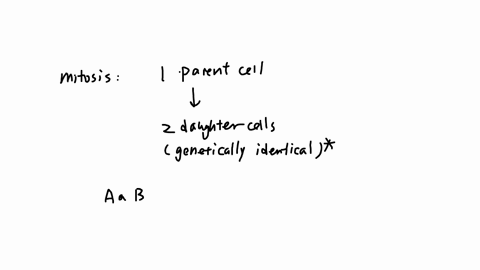 mitosis: 1 parent cell
↓
2 daughter cells
(genetically identical)*
A a B